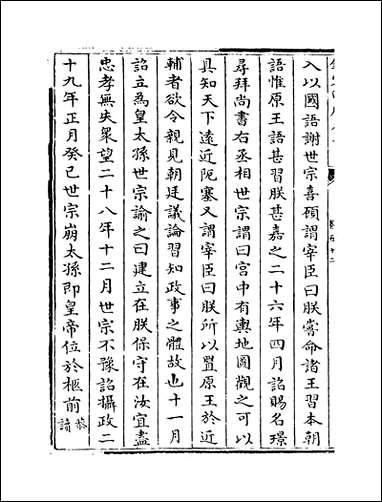 入以國語謝世宗喜顧謂宰臣曰朕嘗命諸王習本朝
語惟原王語甚習朕甚嘉之二十六年四月詔賜名璟
尋拜尚書右丞相世宗謂曰宫中有輿地圖觀之可以
具知天下遠近阨塞又謂宰臣曰朕所以置原王於近
輔者欲令親見朝廷議論習知政事之體故也十一月
詔立為皇太孫世宗諭之曰建立在朕保守在汝宜盡
忠孝無失衆望二十八年十二月世宗不豫詔攝政二
十九年正月癸巳世宗崩太孫即皇帝位於柩前